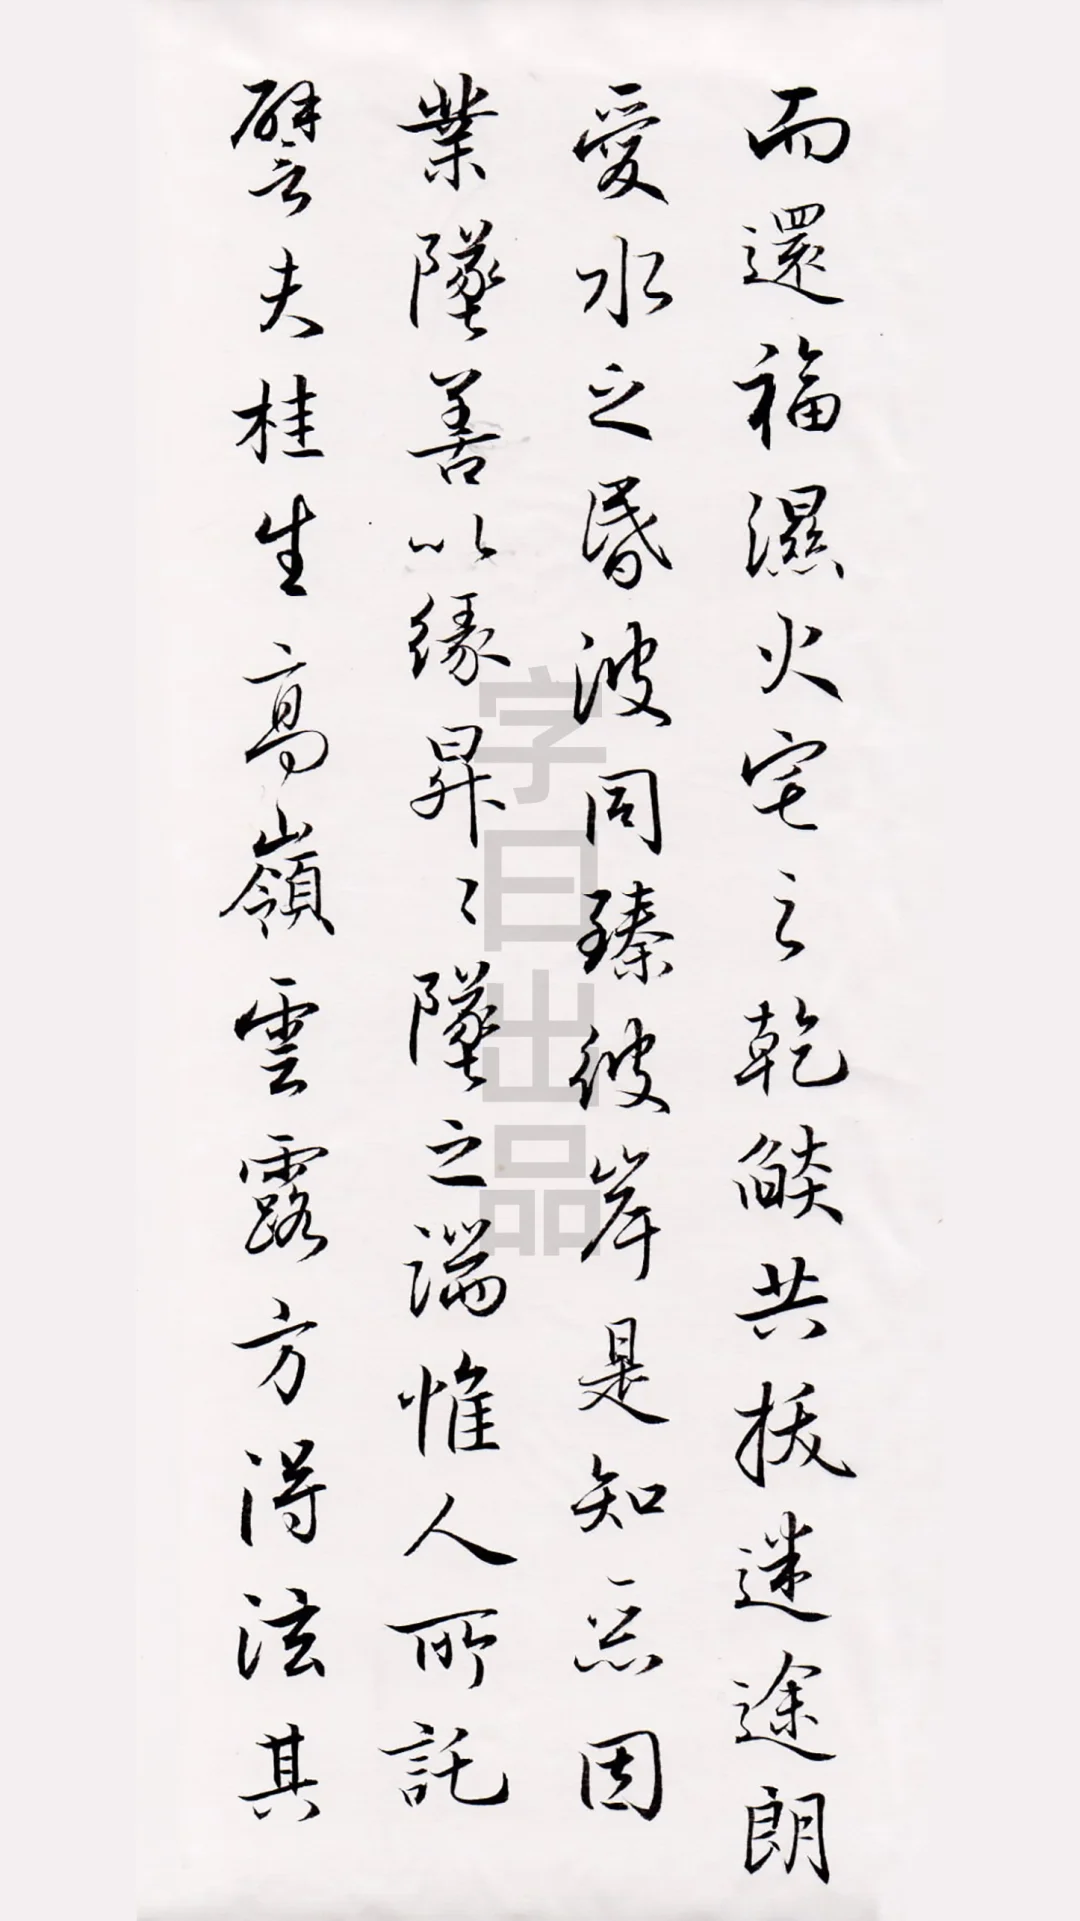 而還福濕火宅之乾燄共拔迷途朗
愛水之昬波同臻彼岸是知惡因
業墜善以緣昇〻墜之端惟人所託
譬夫桂生高嶺雲露方得泫其
字曰出品